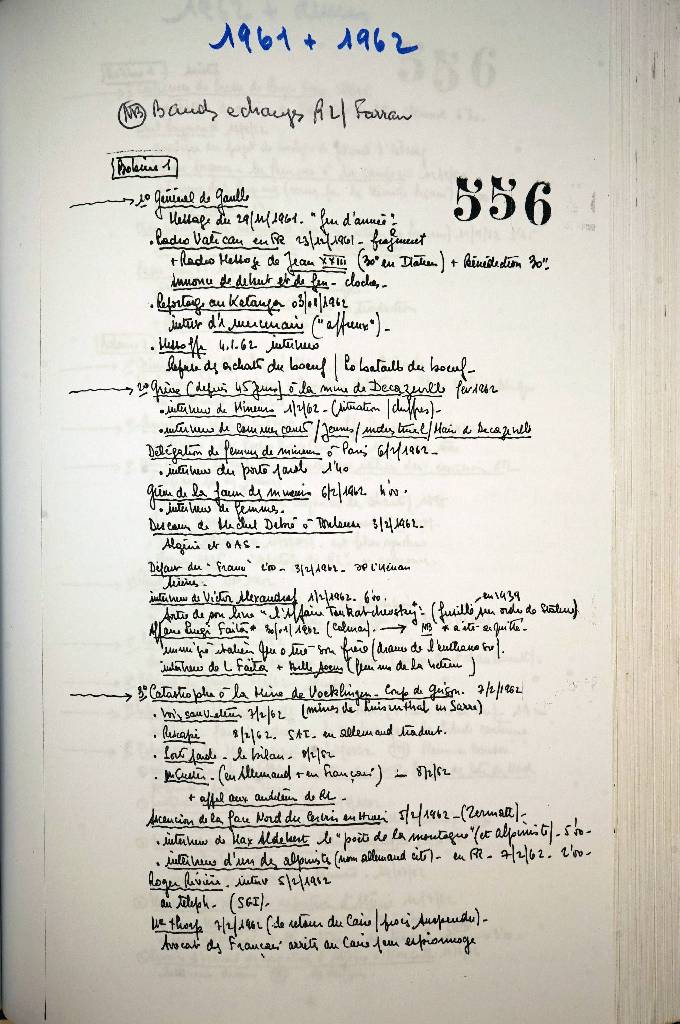 1961 + 1962
(NB) Bandes echanges R2/ Farran
Bobine 1
556
→ 1° Général de Gaulle
Message du 29/12/1961. "fin d'année".
. Radio Vatican en FR 23/12/1961 - fragment
+ Radio Message de Jean XXIII (30" en Italien) + Bénédiction 30".
Annonce de début et de fin - cloches -
. Reportage au Katanga 03/01/1962
interv d'1 mercenaire ("affreux") -
. 4.1.62 interview
Refus des achats du boeuf / La bataille du boeuf -
→ 2° Grève (depuis 45 jours) à la mine de Decazeville fev 1962
. interview de Mineurs 1/2/62 - (situation / chiffres) -
. interview de commerçants / Jeunes / industriel / Maire de Decazeville
Délégation de femmes de mineurs à Paris 6/2/1962 -
. interview du porte parole 1'40
Grève de la faim des mineurs 6/2/1962
. interview de femmes.
Discours de Michel Debré à Toulouse 3/2/1962.
Algérie et OAS -
Départ du "France" 2'00 - 3/2/1962 - 
Sirènes -
interview de Victor Alexandrov 1/2/1962 - 6'00.
Sortie de son livre "l'Affaire Toukhatchevsky" (fusillé sur ordre de Staline)
Affaire Luigi Faita* 30/01/1962 (Colmar) → NB * a été acquitté -
immigré italien qui a tué son frère (drame de l'euthanasie).
interview de L Faita + Belle soeur (femme de la victime)
→ 3° Catastrophe à la Mine de Voelklingen - Corps de garde. 7/2/1962
. Voix sauveteurs 7/2/62 (mines de Luisenthal en Sarre)
. Rescapé 8/2/62. en allemand traduit.
. Porte parole - le bilan - 8/2/62
. (en Allemand + en Français) - 8/2/62
+ appel aux auditeurs de RL -
Ascension de la face Nord du Cervin en Hiver 5/2/1962 - (Zermatt) -
. interview de Max Aldebert le "poète de la montagne" (et alpiniste) - 5'00 -
. interview d'un des alpinistes (nom allemand cité) - en FR - 7/2/62 - 2'00 -
Roger Rivière - interv 5/2/1962
au téleph -
Me 7/2/1962 (de retour du Caire / procès suspendu) -
Avocat des Français arrêtés au Caire pour espionnage